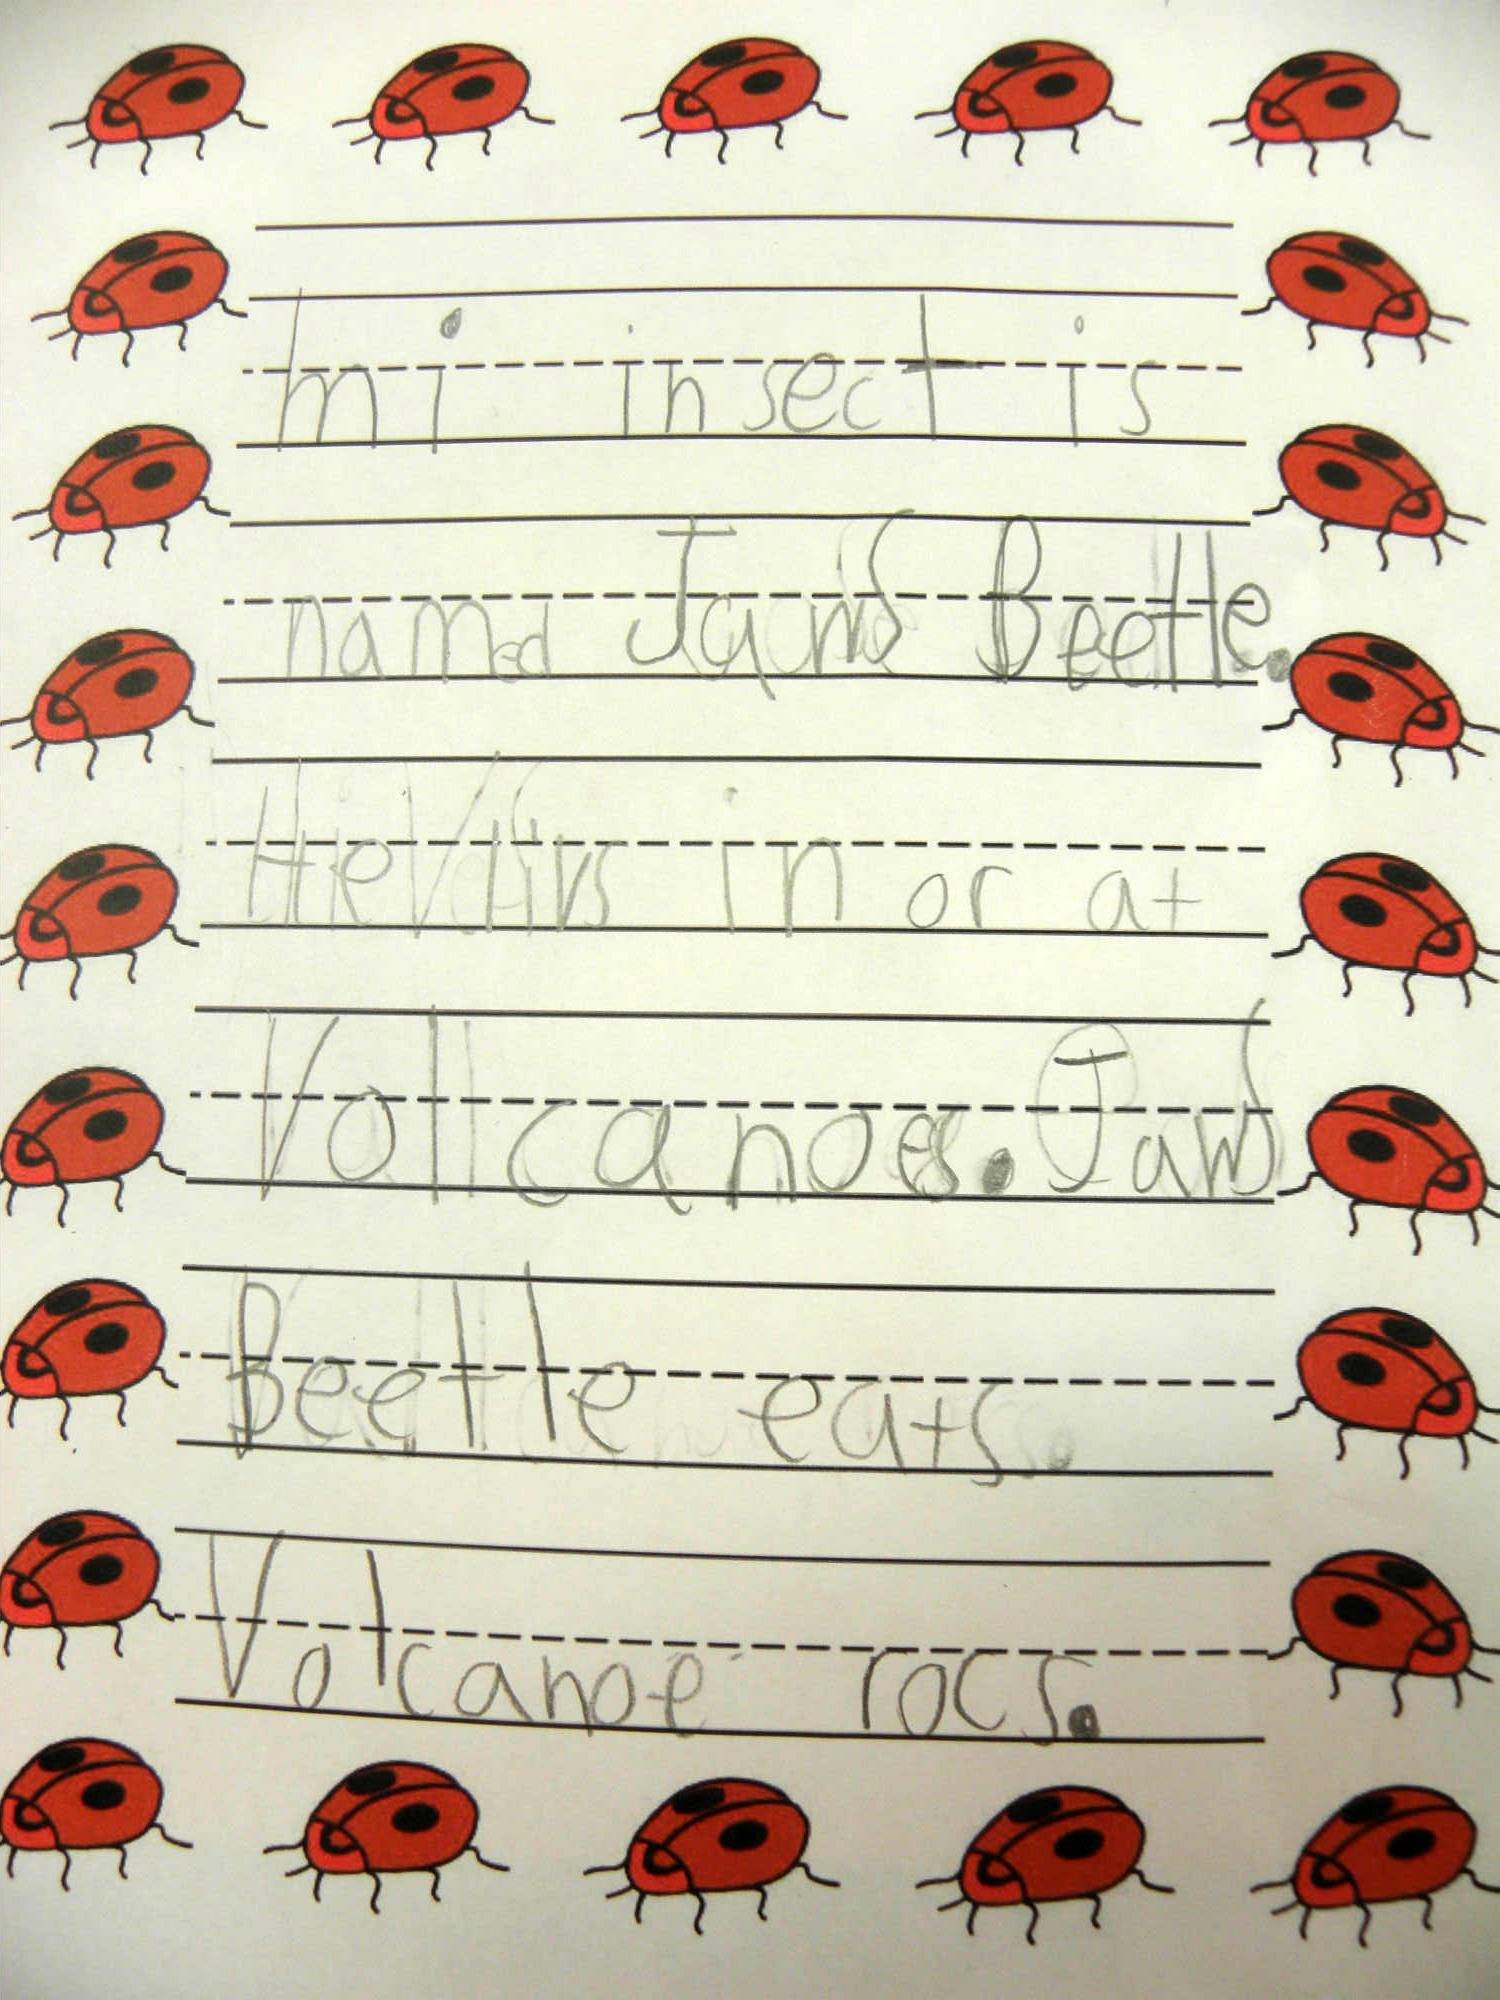 mi insect is
named Jaws Beetle.
He livs in or at
Volcanoes. Jaws
Beetle eats.
Volcanoe rocs.